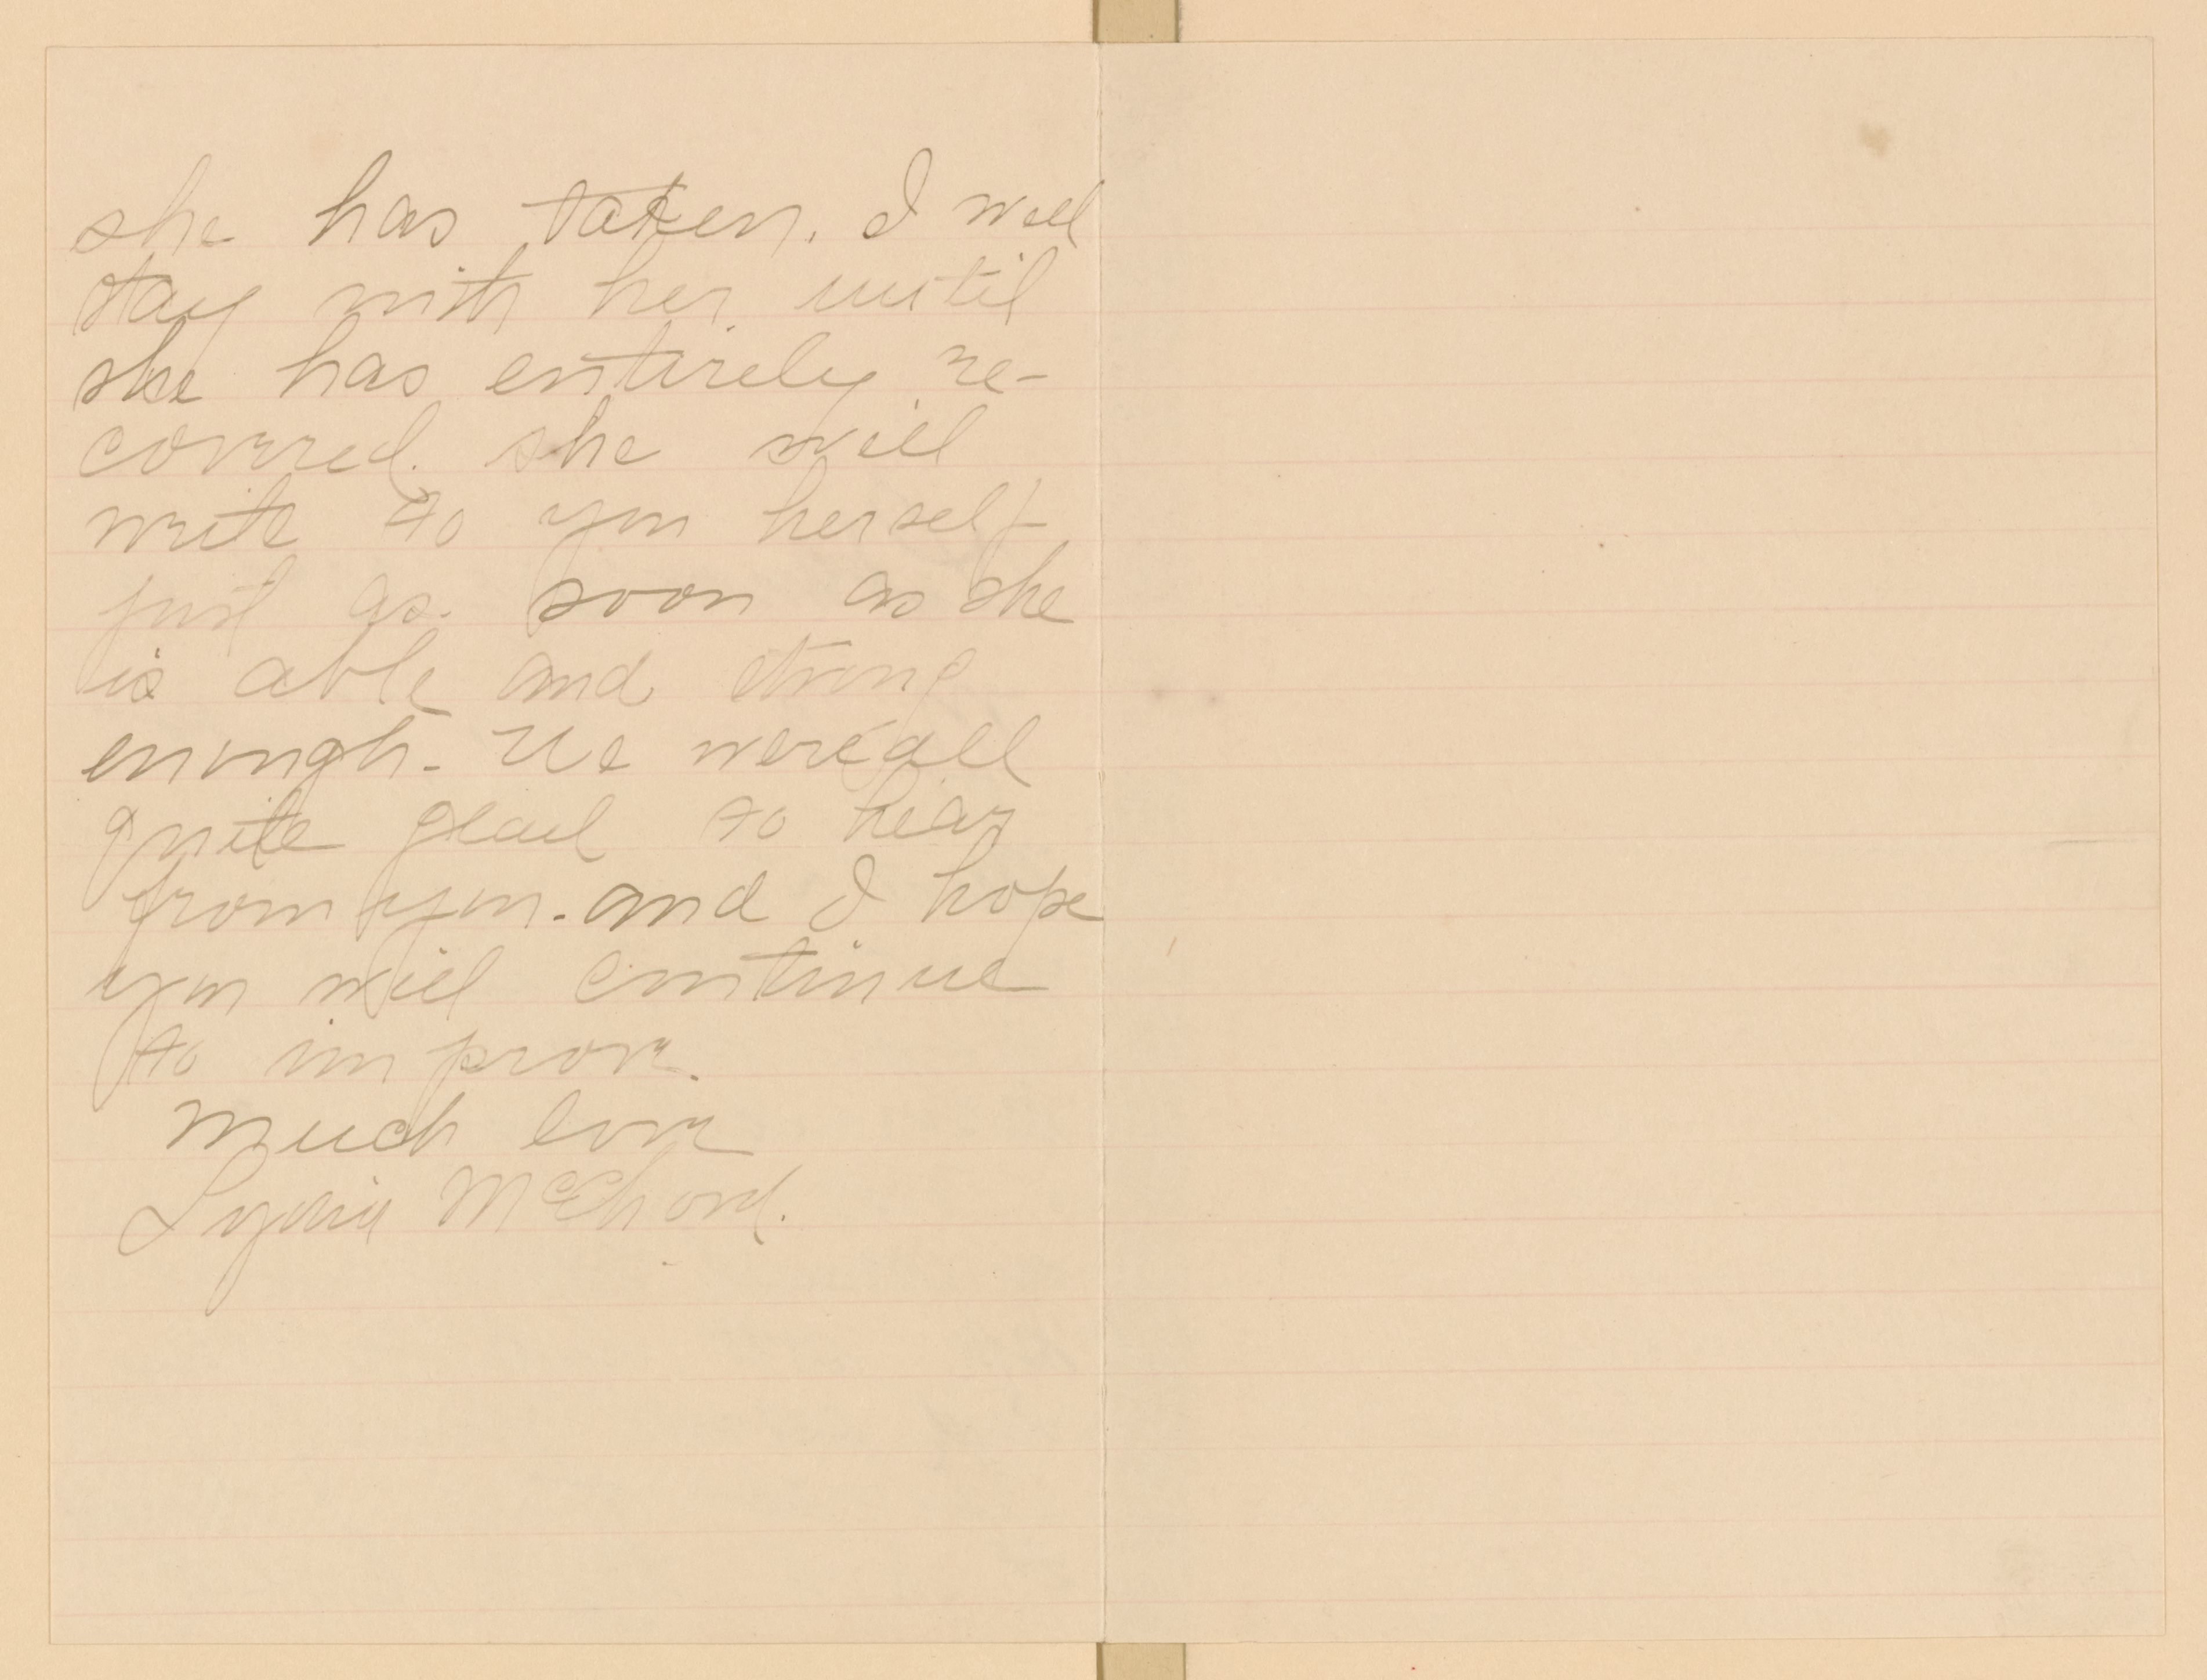 she has taken. I will
stay with her until
she has entirely re-
covered. she will
write to you herself
just as soon as she
is able and strong
enough. We were all
quite glad to hear
from you. and I hope
you will continue
to improve.
much love
Lydia McChord.